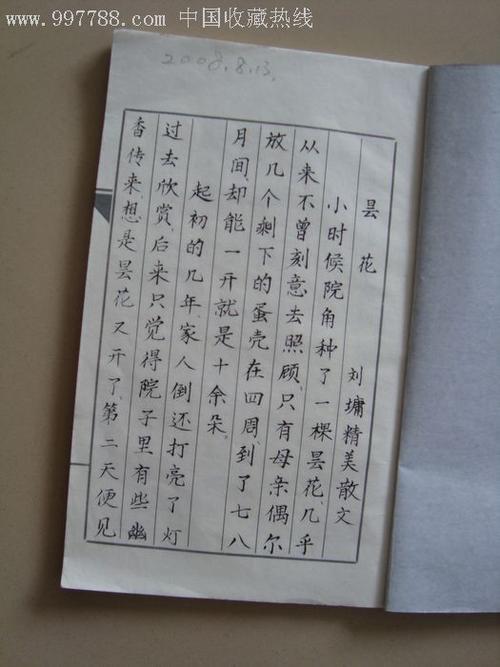 www.997788.com 中国收藏热线
2008.8.13.
昙花
刘墉精美散文
小时候院角种了一棵昙花,几乎
从来不曾刻意去照顾,只有母亲偶尔
放几个剩下的蛋壳在四周,到了七八
月间,却能一开就是十余朵。
起初的几年,家人倒还打亮了灯
过去欣赏,后来只觉得院子里有些幽
香传来,想是昙花又开了,第二天便见